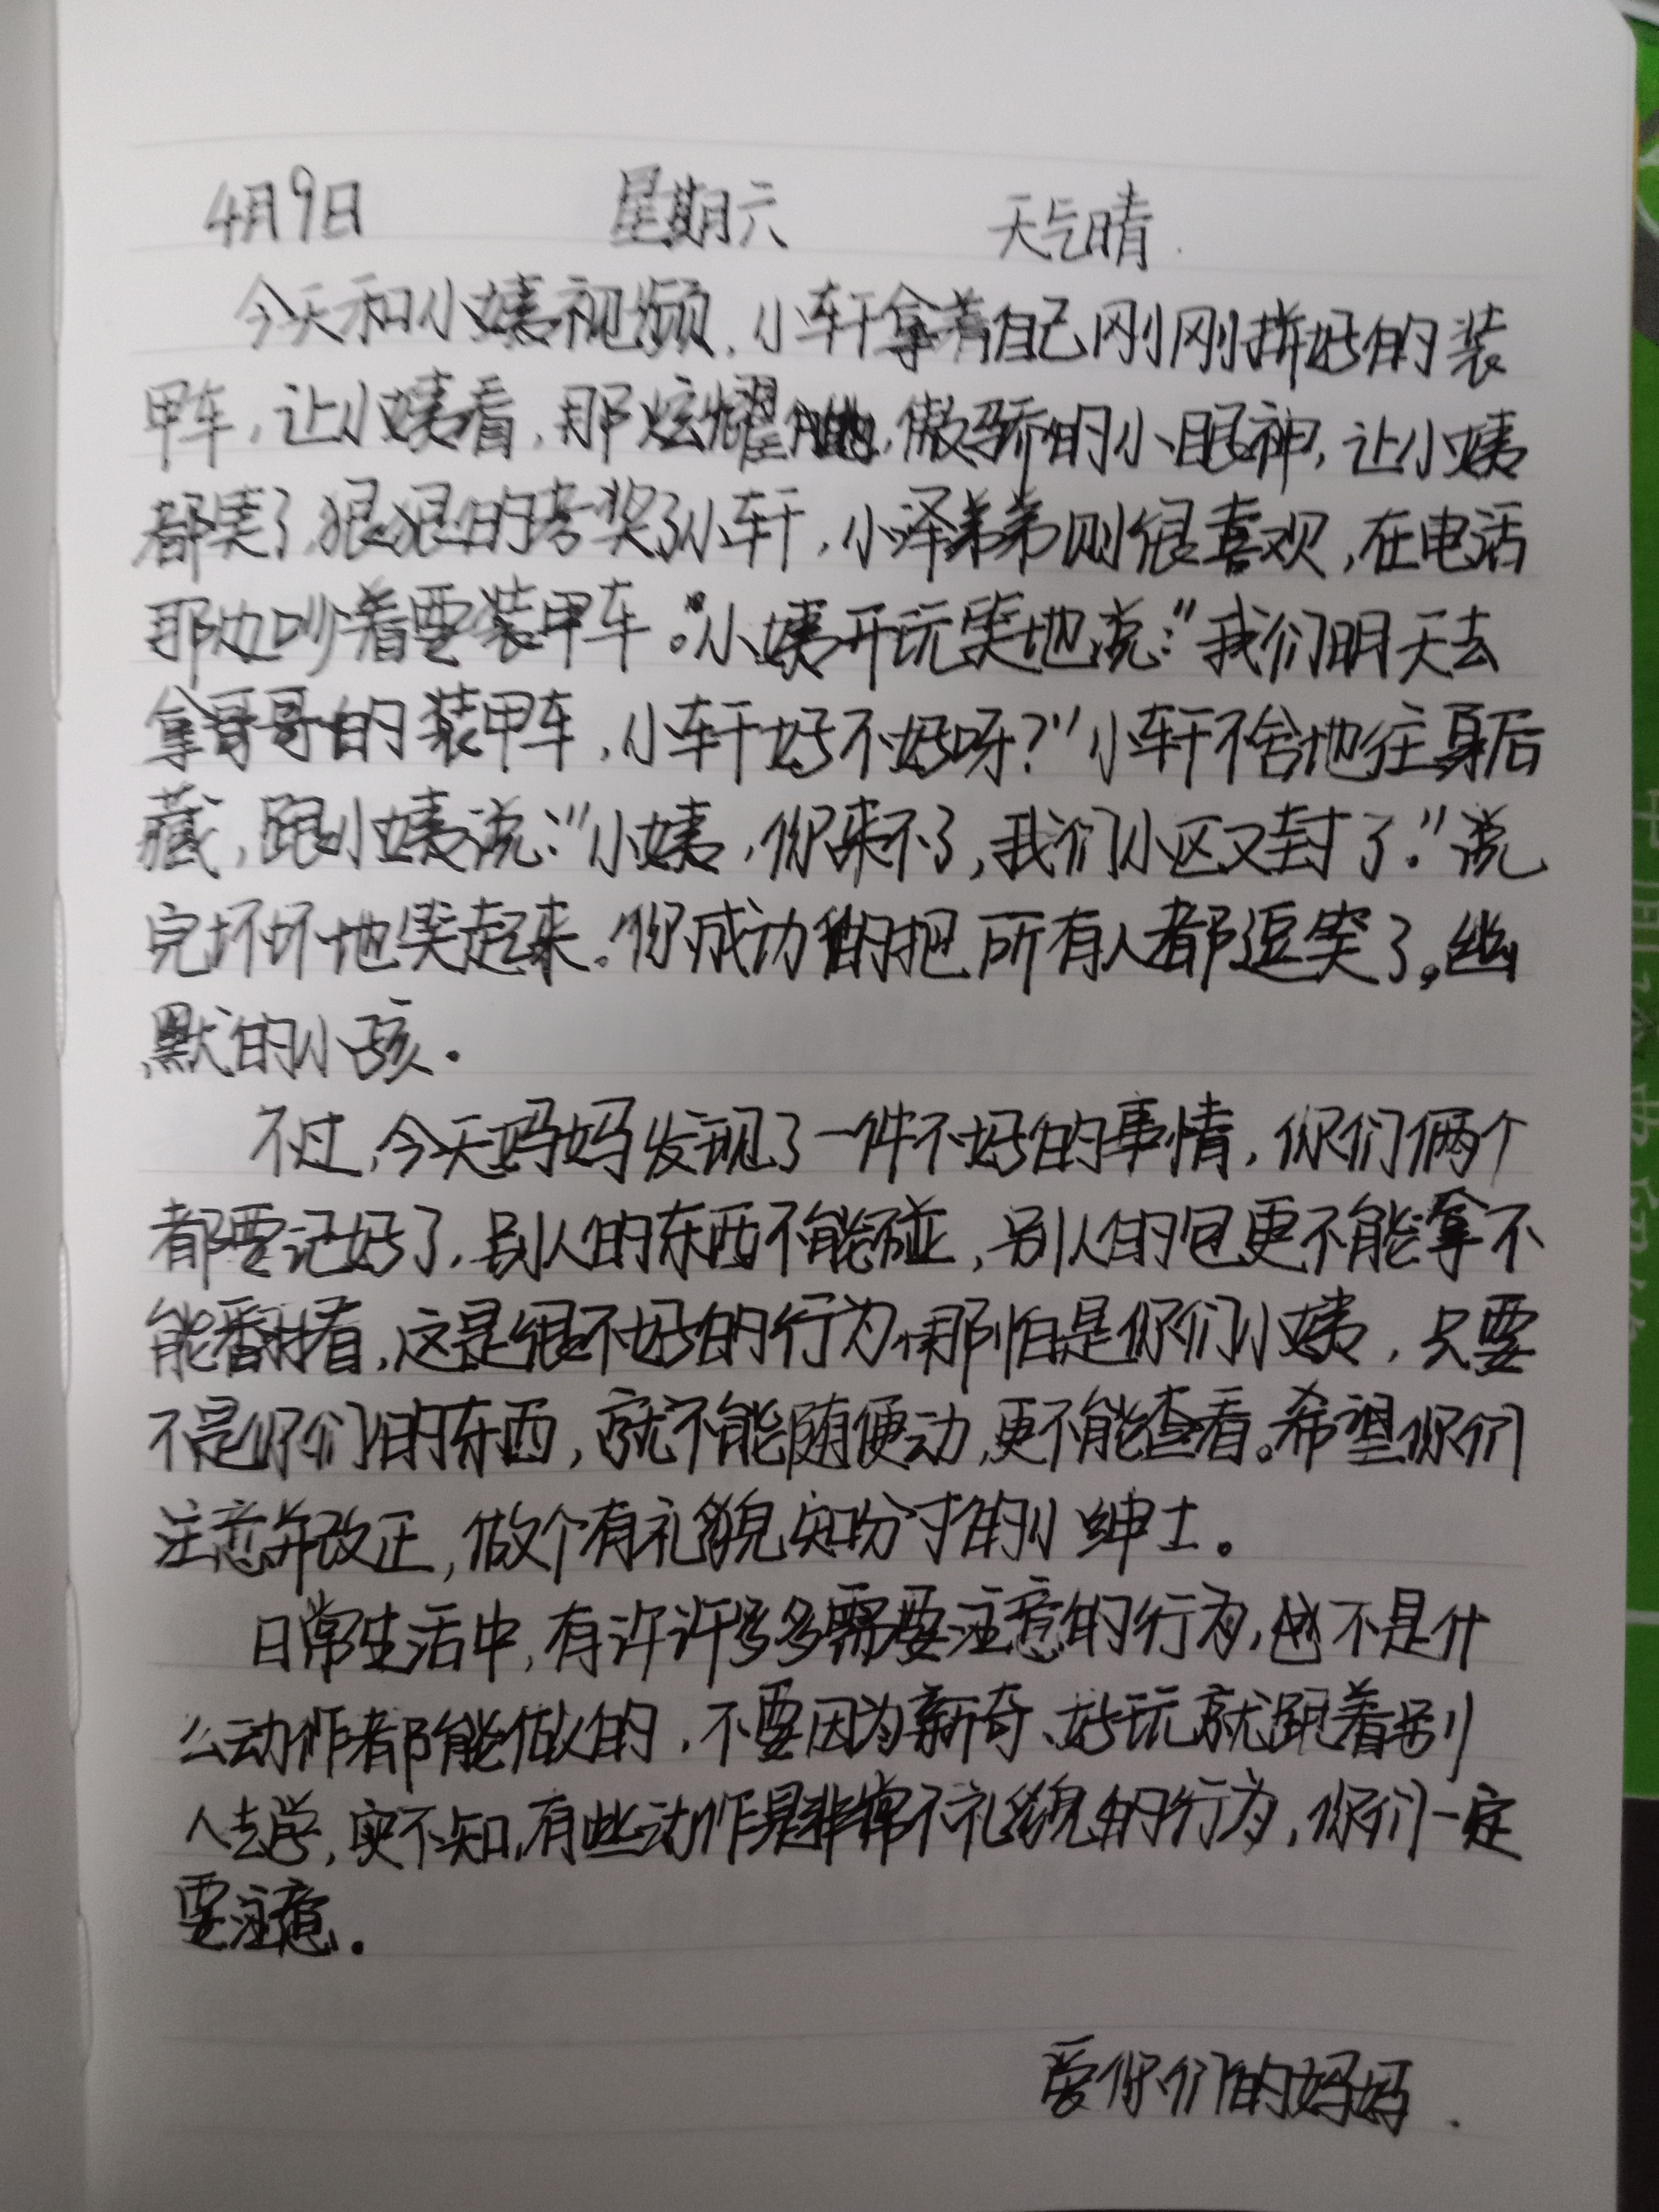 4月9日 星期六 天气晴.
今天和小姨视频,小轩拿着自己刚刚拼好的装
甲车,让小姨看,那炫耀,傲骄的小眼神,让小姨
都笑了,狠狠的夸奖了小轩,小泽弟弟则很喜欢,在电话
那边吵着要装甲车。小姨开玩笑地说:"我们明天去
拿哥哥的装甲车,小轩好不好呀?"小轩不舍地往身后
藏,跟小姨说:"小姨,你来不了,我们小区又封了."说
完坏坏地笑起来。你成功的把所有人都逗笑了。幽
默的小孩.
不过,今天妈妈发现了一件不好的事情,你们俩个
都要记好了,别人的东西不能碰,别人的包更不能拿不
能翻看,这是很不好的行为,那怕是你们小姨,只要
不是你们的东西,就不能随便动,更不能查看。希望你们
注意并改正,做个有礼貌知分寸的小绅士。
日常生活中,有许许多多需要注意的行为,也不是什
么动作都能做的,不要因为新奇、好玩就跟着别
人去学,实不知,有些动作是非常不礼貌的行为,你们一定
要注意.
爱你们的妈妈.